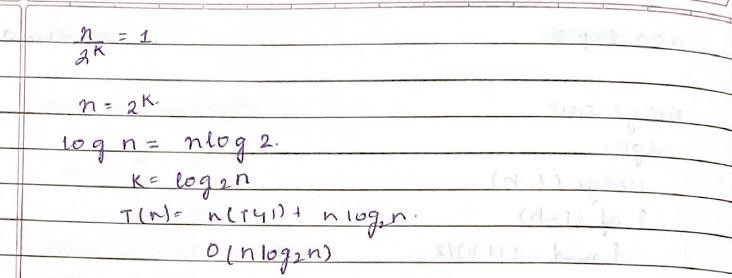 n/2^K = 1
n = 2^K.
log n = nlog 2.
K = log₂n
T(n) = n(T(1)) + n log₂n.
O(n log₂n)